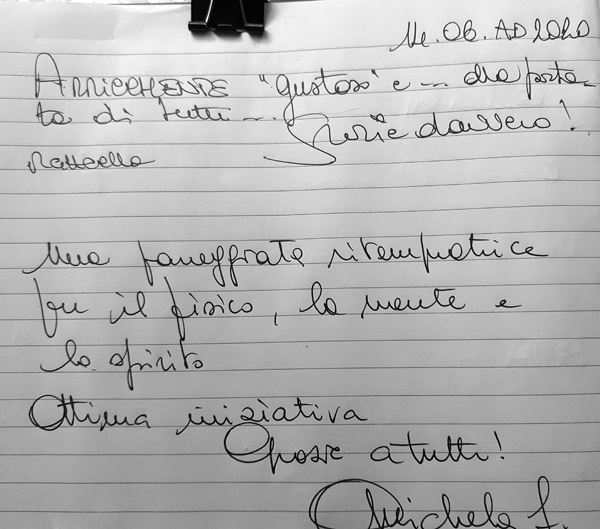 14.06.AD2020
ARRICCHENTE "gustosi" e ... alla porta-
ta di tutti ... Grazie davvero!
Raffaella
Una passeggiata ritempratrice
per il fisico, la mente e
lo spirito
Ottima iniziativa
Grazie a tutti!
Michela f.